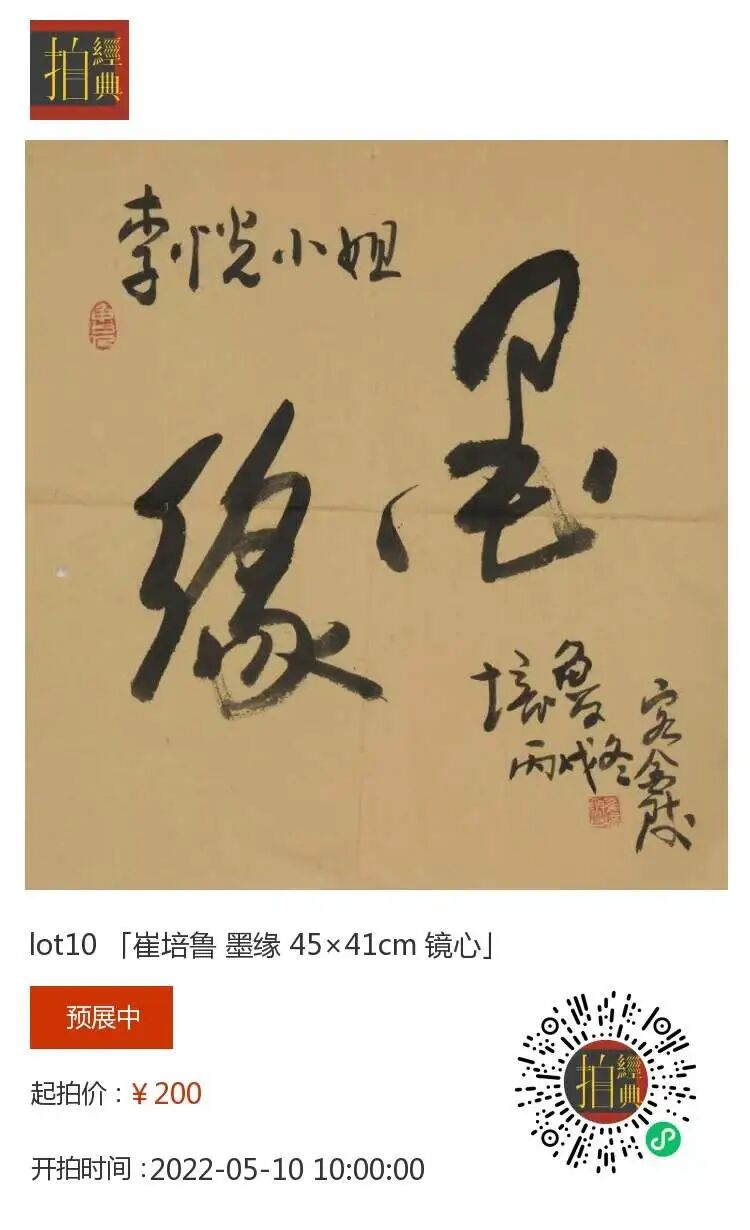 拍經典
李悦小姐
墨缘
培鲁
丙戌冬
客金陵
lot10 「崔培鲁 墨缘 45×41cm 镜心」
预展中
起拍价：¥200
开拍时间:2022-05-10 10:00:00
拍經典